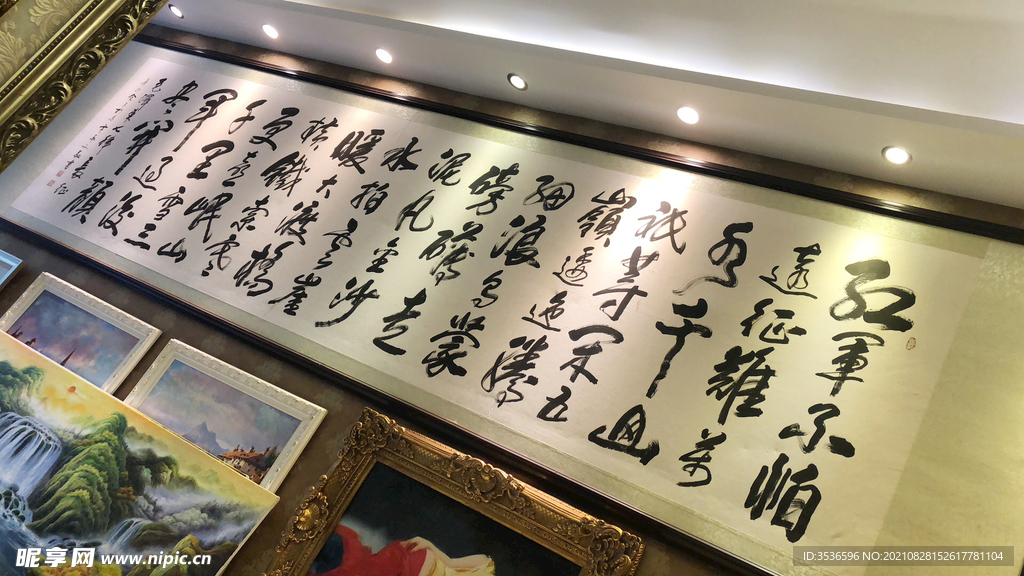 红軍不怕
遠征難萬
水千山
祇等閑五
嶺逶迤騰
細浪烏蒙
磅礴走
泥丸金沙
水拍雲崖
暖大渡橋
橫鐵索寒
更喜岷山
千里雪三
軍過後盡
開顏
昵享网 www.nipic.cn
ID:3536596 NO:20210828152617781104